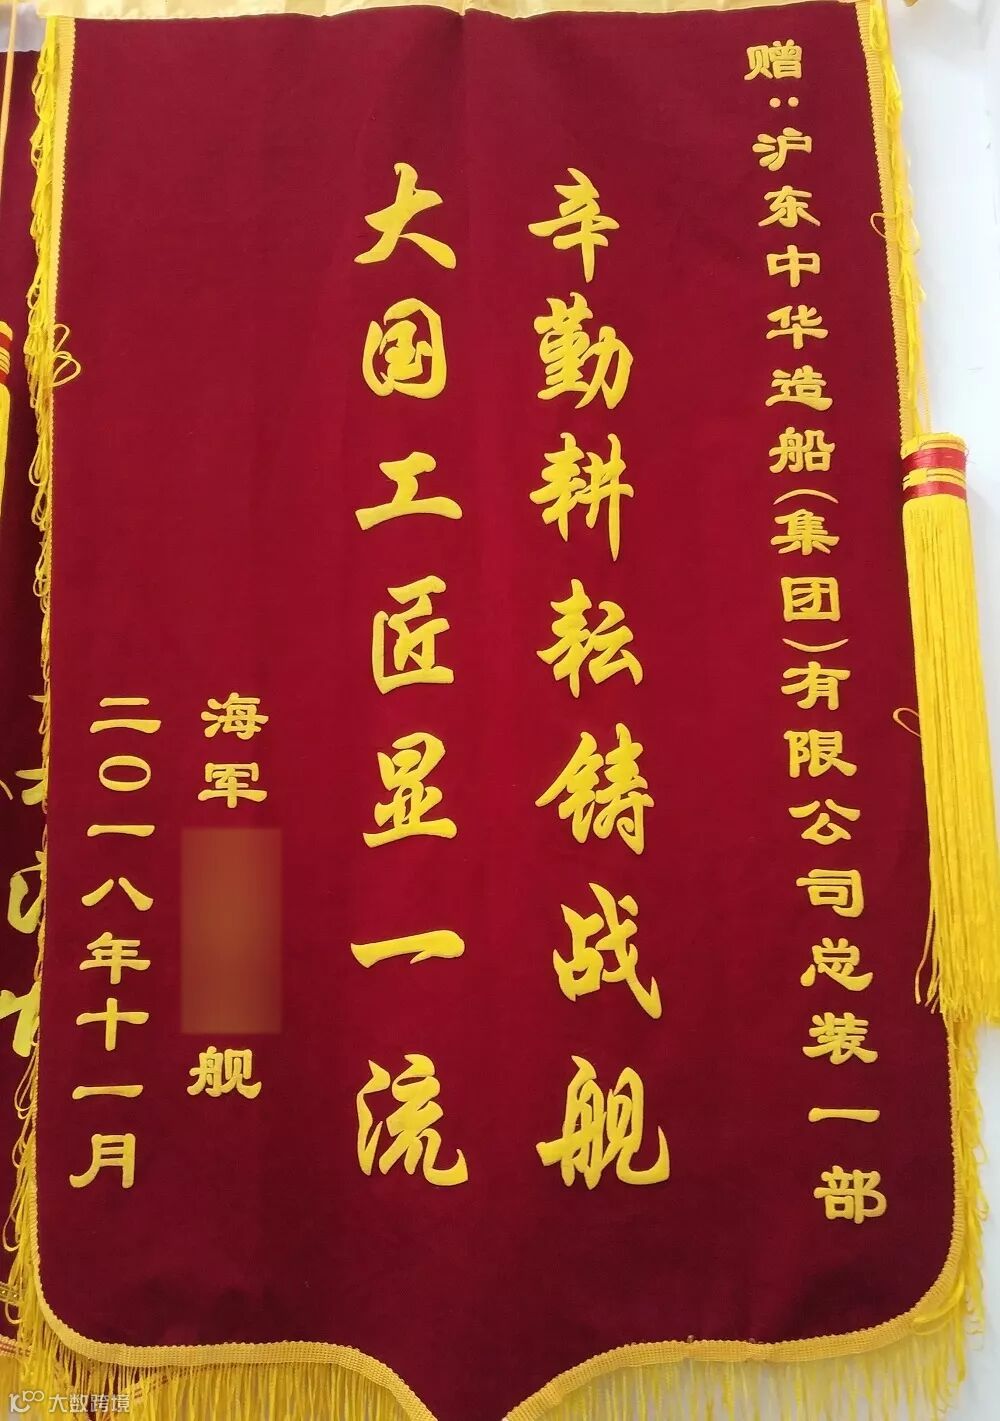 赠：沪东中华造船（集团）有限公司总装一部
辛勤耕耘铸战舰
大国工匠显一流
海军
舰
二〇一八年十一月
大数跨境